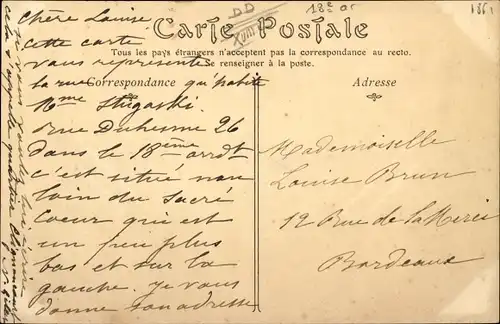 Carte Postale
Tous les pays étrangers n'acceptent pas la correspondance au recto.
Se renseigner à la poste.
Correspondance
Adresse
DD
18e ar
Chère Louise
Cette carte
vous représente
la rue qu'habite
Mme
rue Duhesme 26
dans le 18ième arrdt
c'est situé non
loin du Sacré
Coeur qui est
un peu plus
bas et sur la
gauche. Je vous
donne son adresse
Mademoiselle
Louise Brun
12 Rue de la Merci
Bordeaux